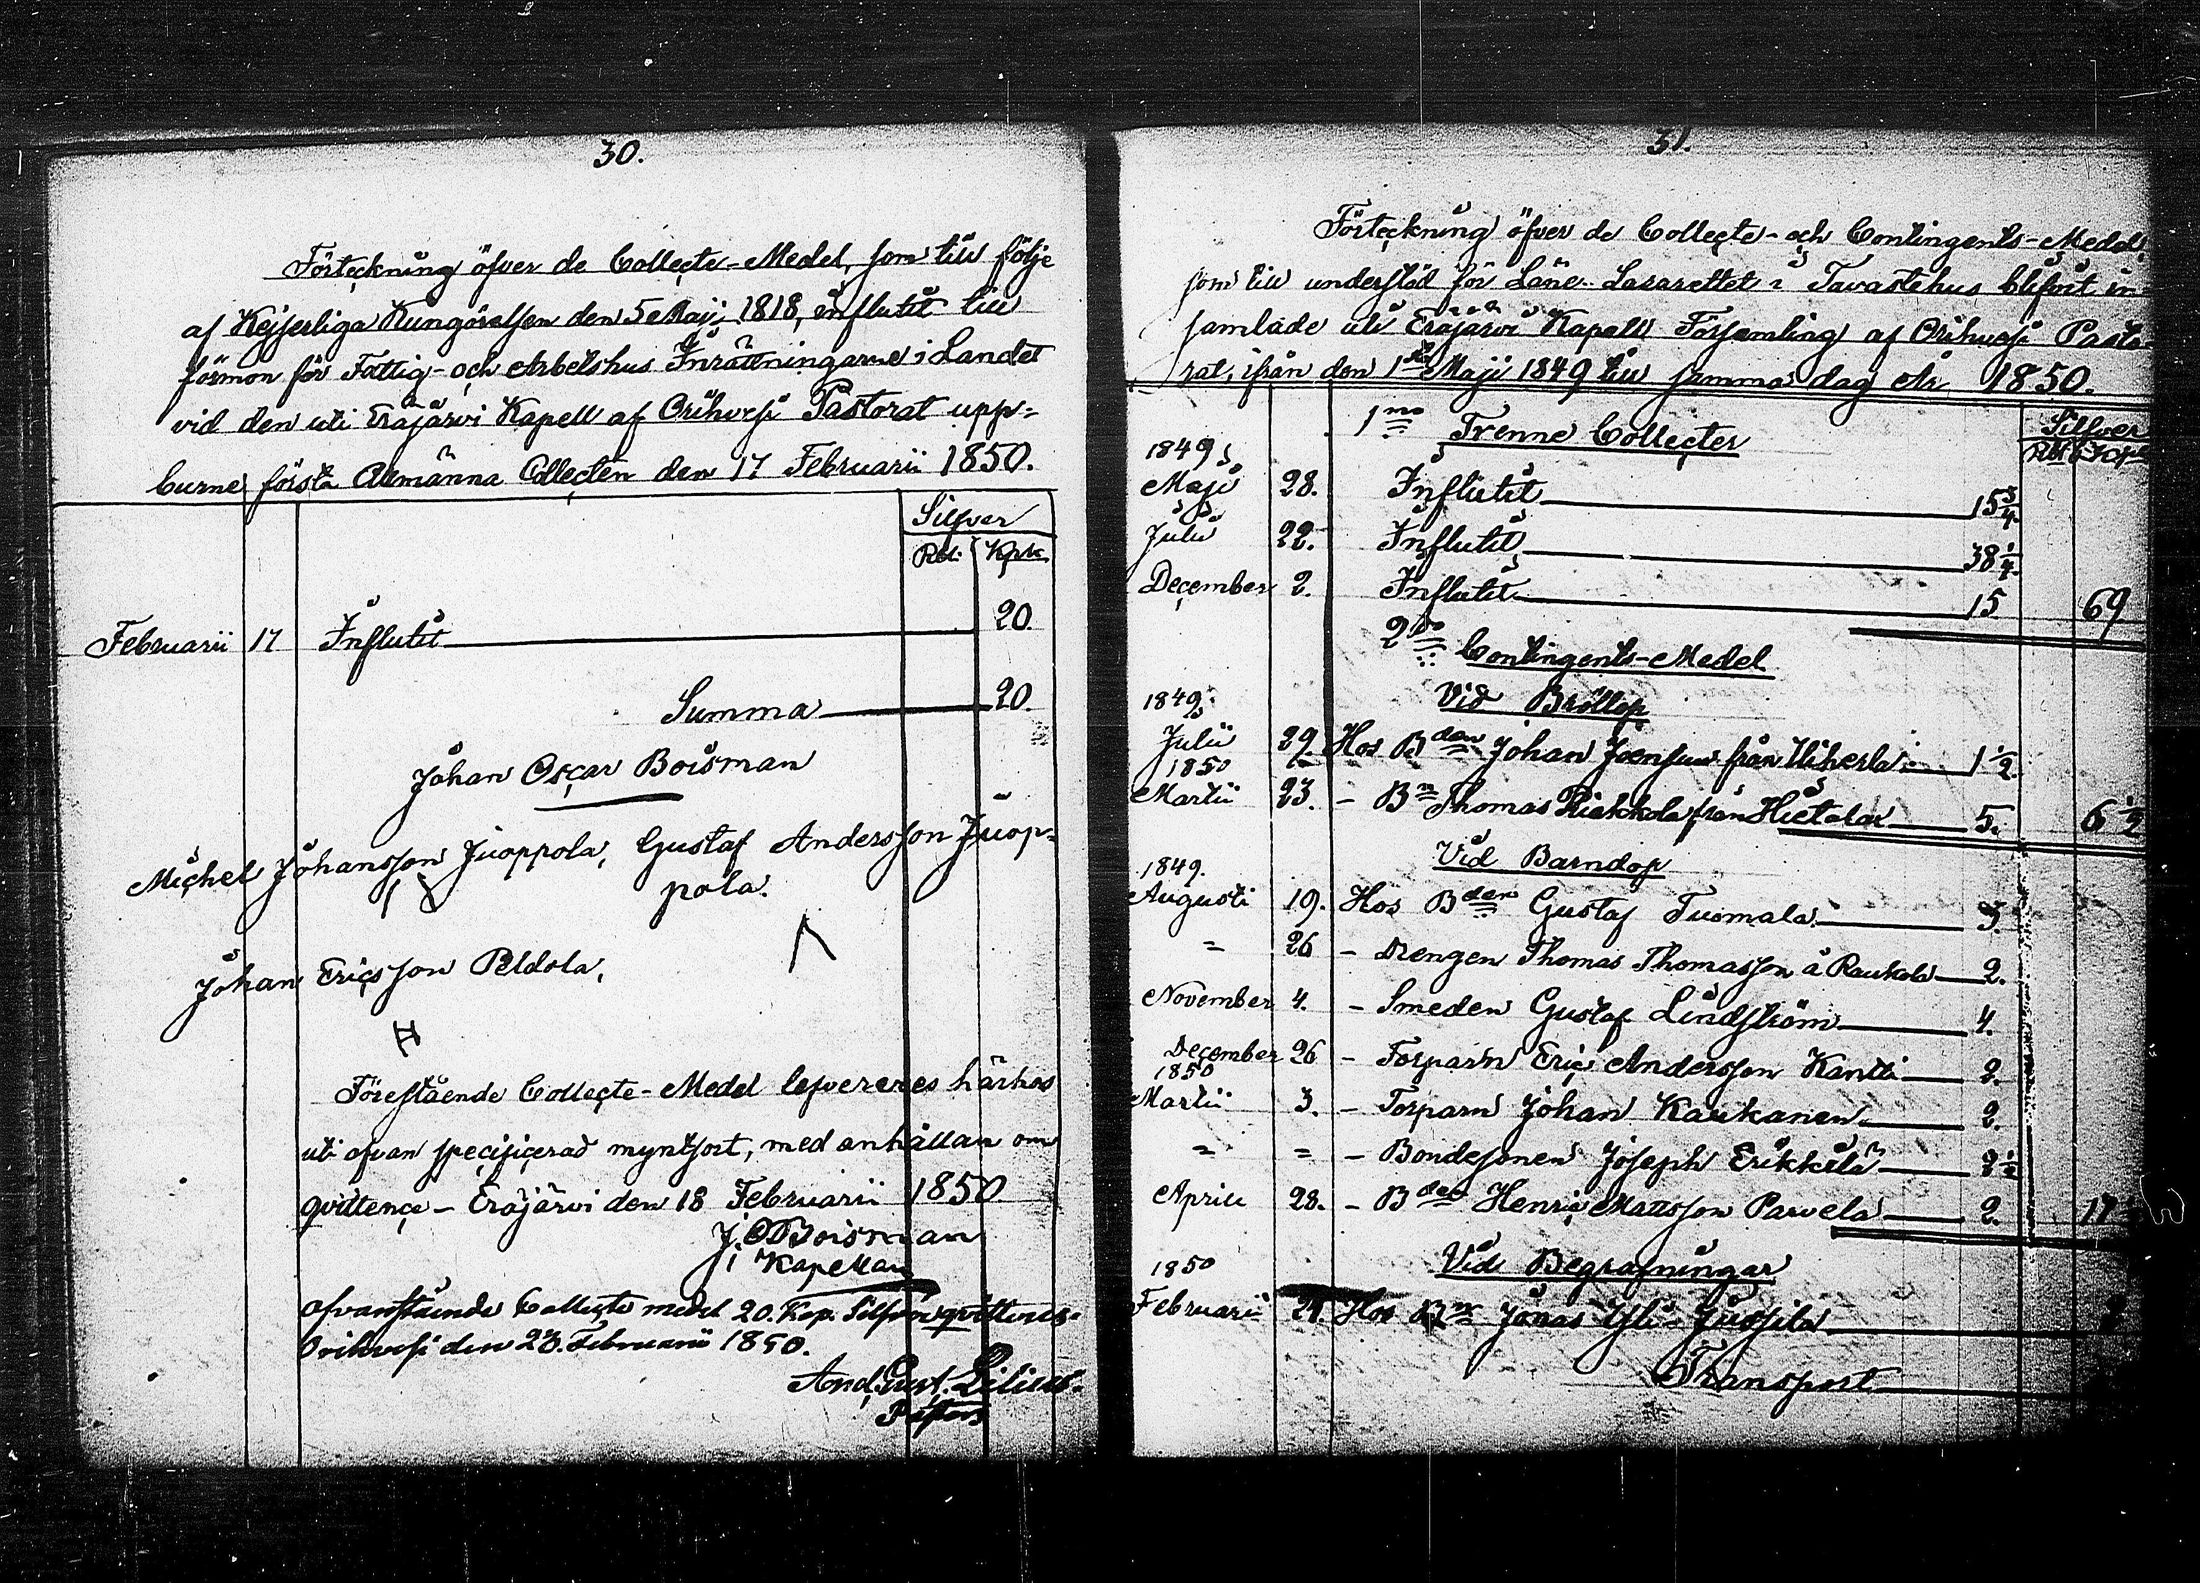 30.
Förteckning öfver de Collecte-Medel, som till följe
af Kejserliga Kungörelsen den 5 Maji 1818, influtit till
förmon för Fattig- och Arbetshus Inrättningarne i Landet
vid den uti Eräjärvi Kapell af Orihvesi Pastorat upp-
burne första Allmänna Collecten den 17 Februarii 1850.
Silfver
Rbl. Kpk.
Februarii 17 Influtit 20.
Summa 20.
Johan Oscar Boisman
Michel Johansson Juoppola, Gustaf Andersson Juop-
pola.
Johan Ericsson Peldola,
Förestående Collecte-Medel lefvereres härhos
uti ofvan specificerad myntsort, med anhållan om
qvittence – Eräjärvi den 18 Februarii 1850
J. O Boisman
Kapellan
Ofvanstående Collecte medel 20. Kop. Silfver qvitteras.
Orihvesi den 23. Februarii 1850.
And. Gust. Lilius.
Pastor
31.
Förteckning öfver de Collecte- och Contingents-Medel,
som till understöd för Läns-Lasarettet i Tavastehus blifvit in-
samlade uti Eräjärvi Kapell Församling af Orihvesi Pasto-
rat, ifrån den 1sta Maji 1849 till samma dag År 1850.
Silfver
Rbl Kpk
1mo Trenne Collecter
1849
Maji 28. Influtit 15 3/4
Julii 22. Influtit 38 1/4
December 2. Influtit 15 69
2do Contingents-Medel
Vid Bröllop
1849.
Julii 29. Hos Bden Johan Joensuu från Uiherla 1 1/2
1850
Martii 23. – Bn Thomas Riekkola från Hietala 5. 6 1/2
Vid Barndop
1849.
Augusti 19. Hos Bden Gustaf Tuomala 3
= 26 – Drengen Thomas Thomasson å Raukola 2.
November 4. – Smeden Gustaf Lindström 4.
December 26 – Torparn Eric Andersson Kantti 2.
1850
Martii 3. – Torparn Johan Kaukanen 2.
= = – Bondesonen Joseph Erikkilä 2 1/2
Aprill 28. – Bden Henric Mattsson Parvela 2. 17
Vid Begrafningar
1850
Februarii 24. Hos Bn Jonas Yli-Jussila
Transport